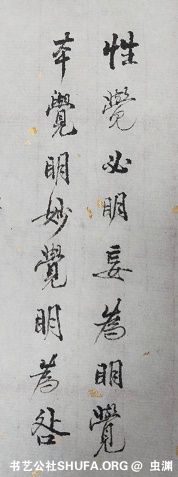 性覺必明妄為明覺
本覺明妙覺明為咎
书艺公社SHUFA.ORG @ 虫渊